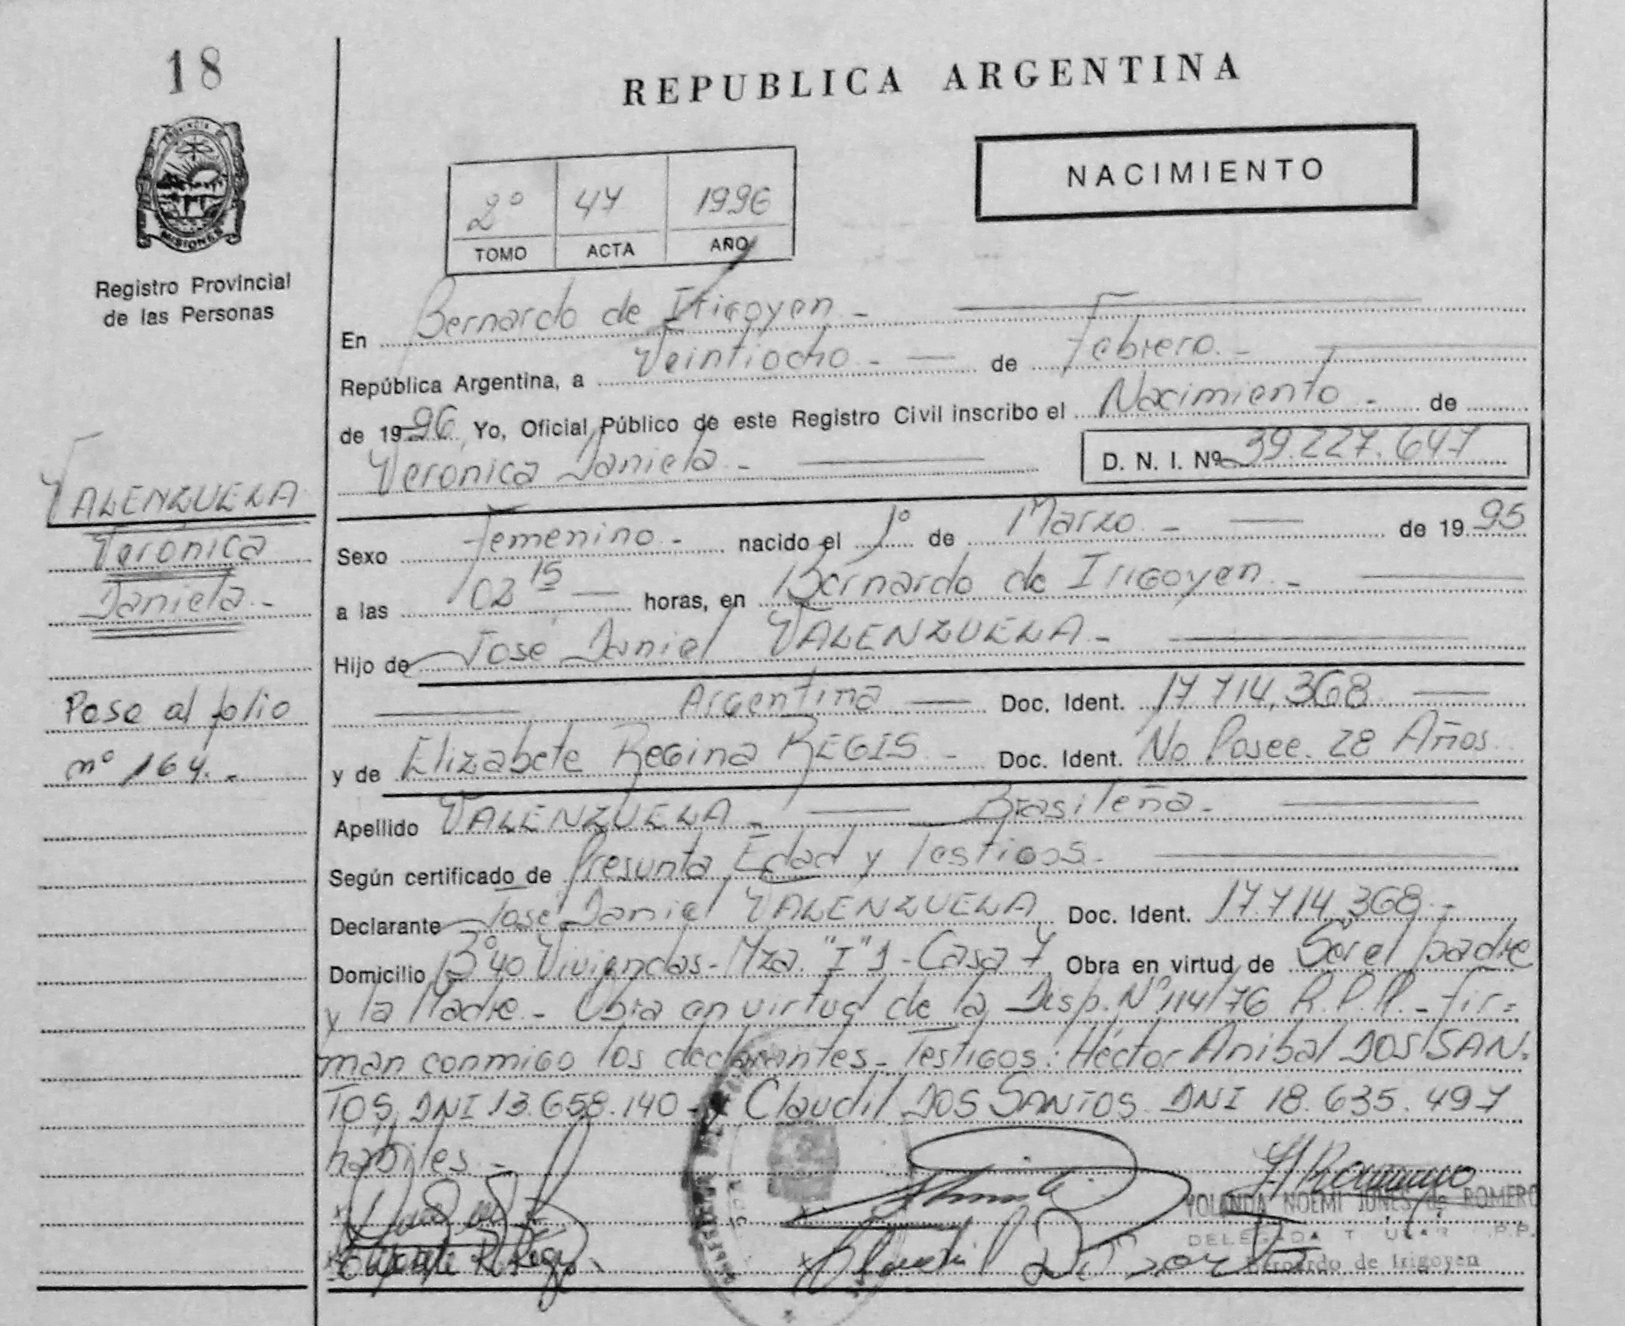 18
REPUBLICA ARGENTINA
PROVINCIA DE
MISIONES
Registro Provincial
de las Personas
NACIMIENTO
2º 47 1996
TOMO ACTA AÑO
En Bernardo de Irigoyen -
República Argentina, a Veintiocho - de Febrero. -
de 1996 Yo, Oficial Público de este Registro Civil inscribo el Nacimiento - de
Verónica Daniela - D. N. I. Nº 39.227.647
VALENZUELA
Verónica
Daniela -
Sexo Femenino - nacido el 1º de Marzo - de 1995
a las 02 15 horas, en Bernardo de Irigoyen -
Hijo de José Daniel VALENZUELA -
Argentina Doc. Ident. 17.714.368
Pase al folio
nº 164. -
y de Elizabete Regina REGIS - Doc. Ident. No Posee. 28 Años.
Apellido VALENZUELA - Brasileña -
Según certificado de Presunta Edad y Testigos -
Declarante José Daniel VALENZUELA Doc. Ident. 17.714.368 -
Domicilio Bº 40 Viviendas - Mza. "I" 1 - Casa 7 Obra en virtud de Ser el padre
y la Madre. - Obra en virtud de la Disp. Nº 114/76 R.P.P. - Fir=
man conmigo los declarantes - Testigos: Héctor Anibal DOS SAN-
TOS, DNI 13.658.140 - Claudil DOS SANTOS DNI 18.635.497
hábiles -
YOLANDA NOEMI JUNES de ROMERO
DELEGADA
Bernardo de Irigoyen